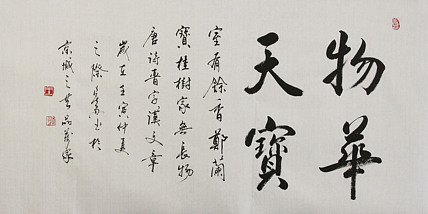 物華
天寶
室有餘香鄭蘭
寶桂樹家無長物
唐詩晉字漢文章
歲在壬寅仲夏
之際 書於
京城之 品 家